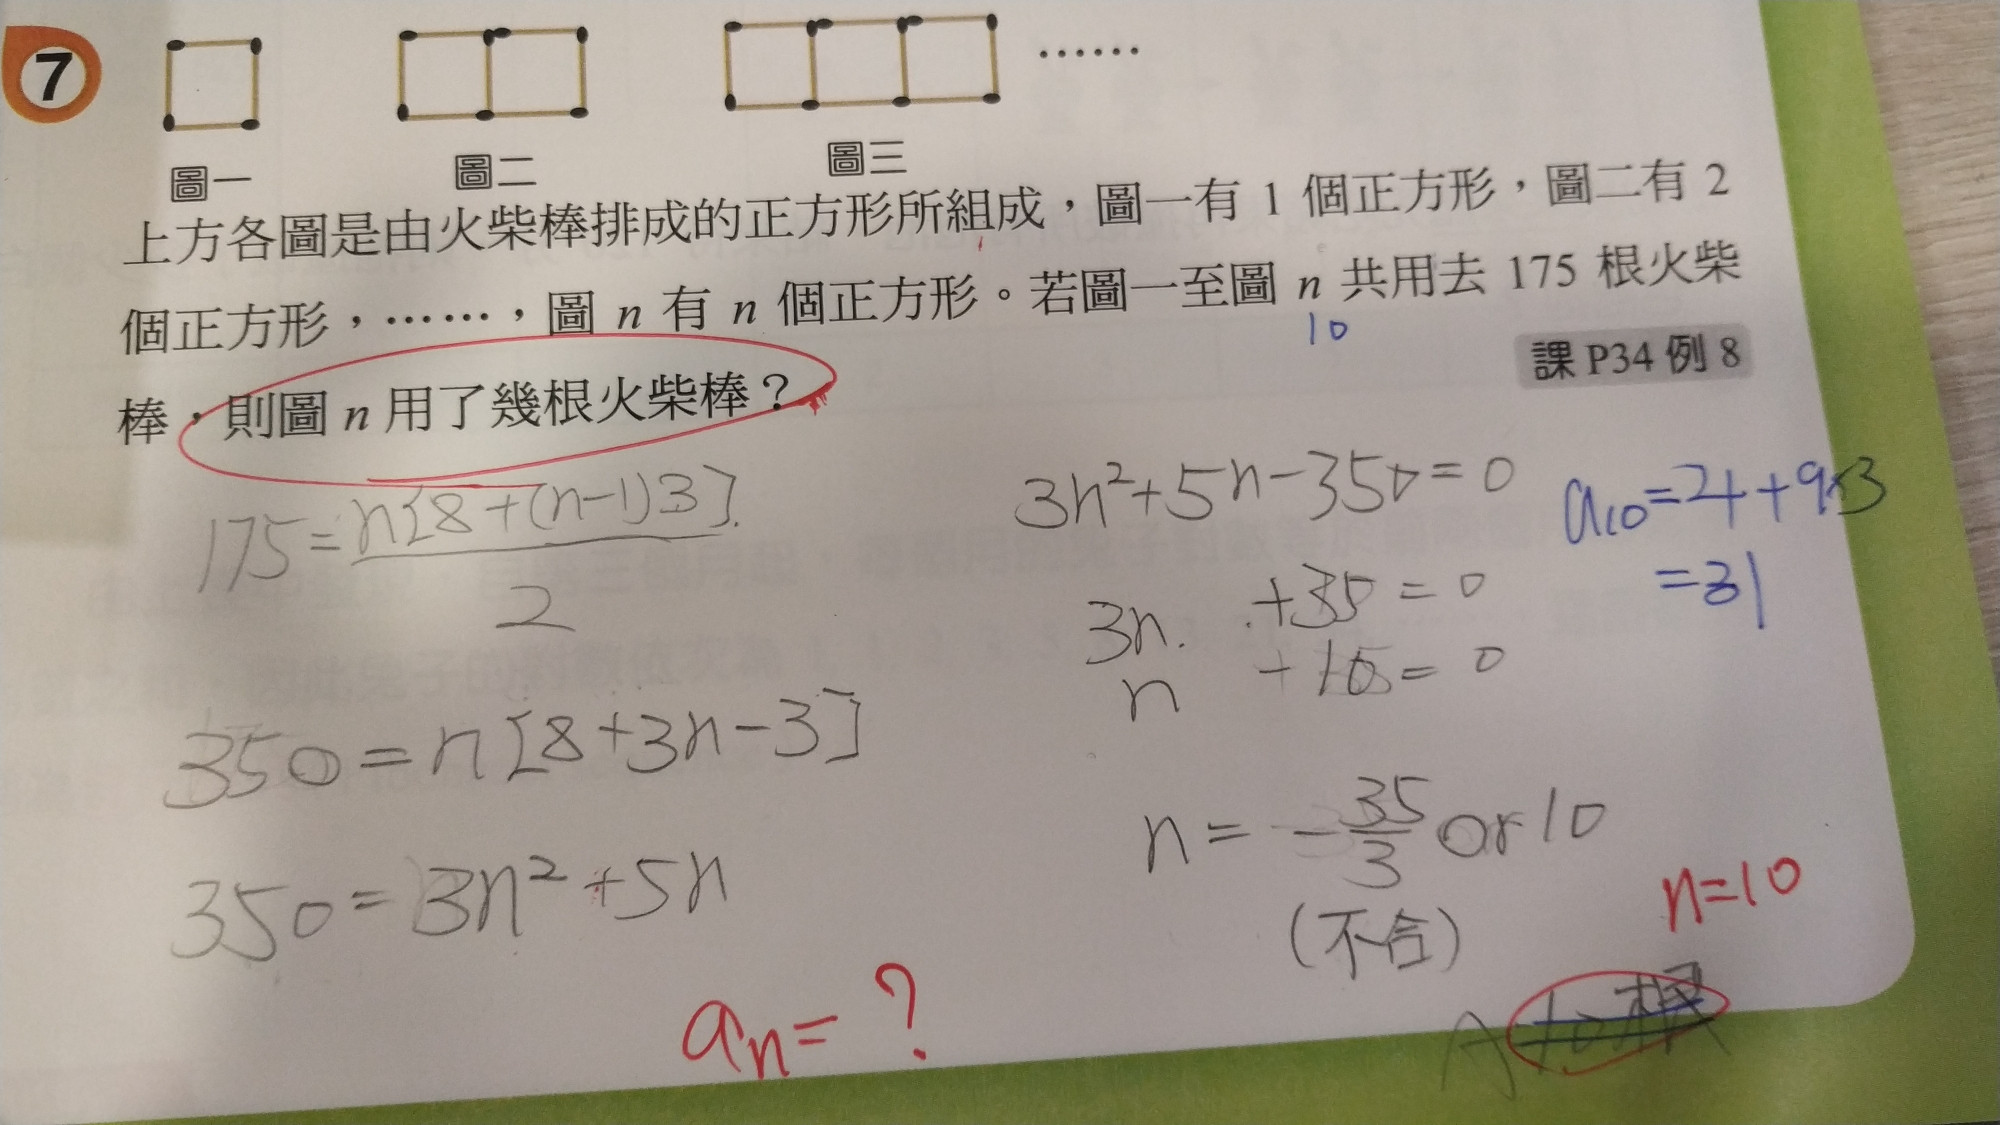 7
圖一 圖二 圖三 ……
上方各圖是由火柴棒排成的正方形所組成，圖一有 1 個正方形，圖二有 2
個正方形，……，圖 n 有 n 個正方形。若圖一至圖 n 共用去 175 根火柴
10
棒，則圖 n 用了幾根火柴棒？
課 P34 例 8
175=n[8+(n-1)3]/2
350=n[8+3n-3]
350=3n²+5n
3n²+5n-350=0
3n +35=0
n -10=0
n=-35/3 or 10
(不合)
a10=4+9×3
=31
n=10
an=?
A 10根